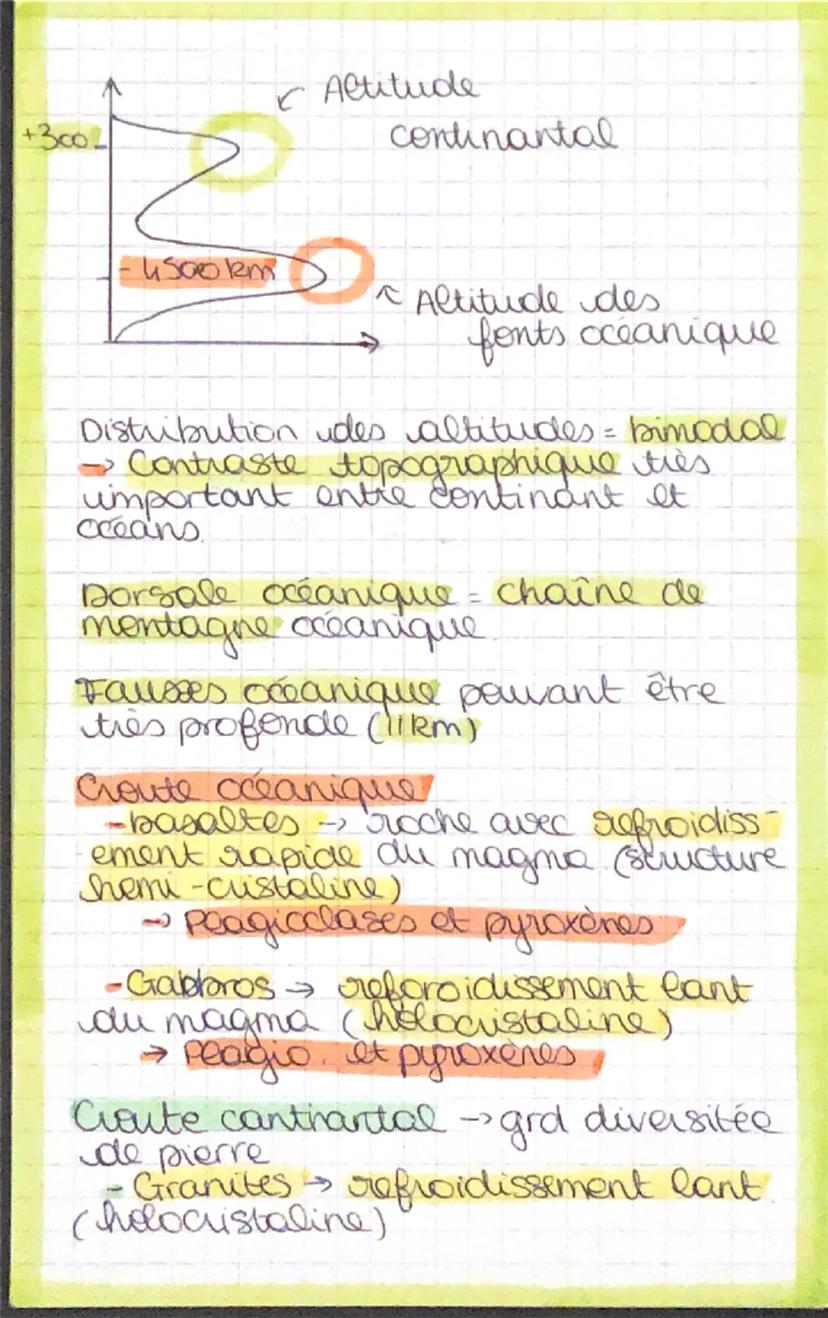 Altitude
continantal
+300
- 4500 km
Altitude des
fonts océanique
Distribution des altitudes = bimodal
→ Contraste topographique très
important entre continant et
océans.
Dorsale océanique = chaîne de
montagne océanique
Fausses océanique pouvant être
très profonde (11km)
Croute océanique
- basaltes → roche avec refroidiss-
ement rapide du magma (structure
hemi-cristaline)
→ Plagioclases et pyroxènes
- Gabbros → reforoidissement lant
du magma (holocristaline)
→ Plagio. et pyroxènes
Croute continantal → grd diversitée
de pierre
- Granites → refroidissement lant
(holocristaline)